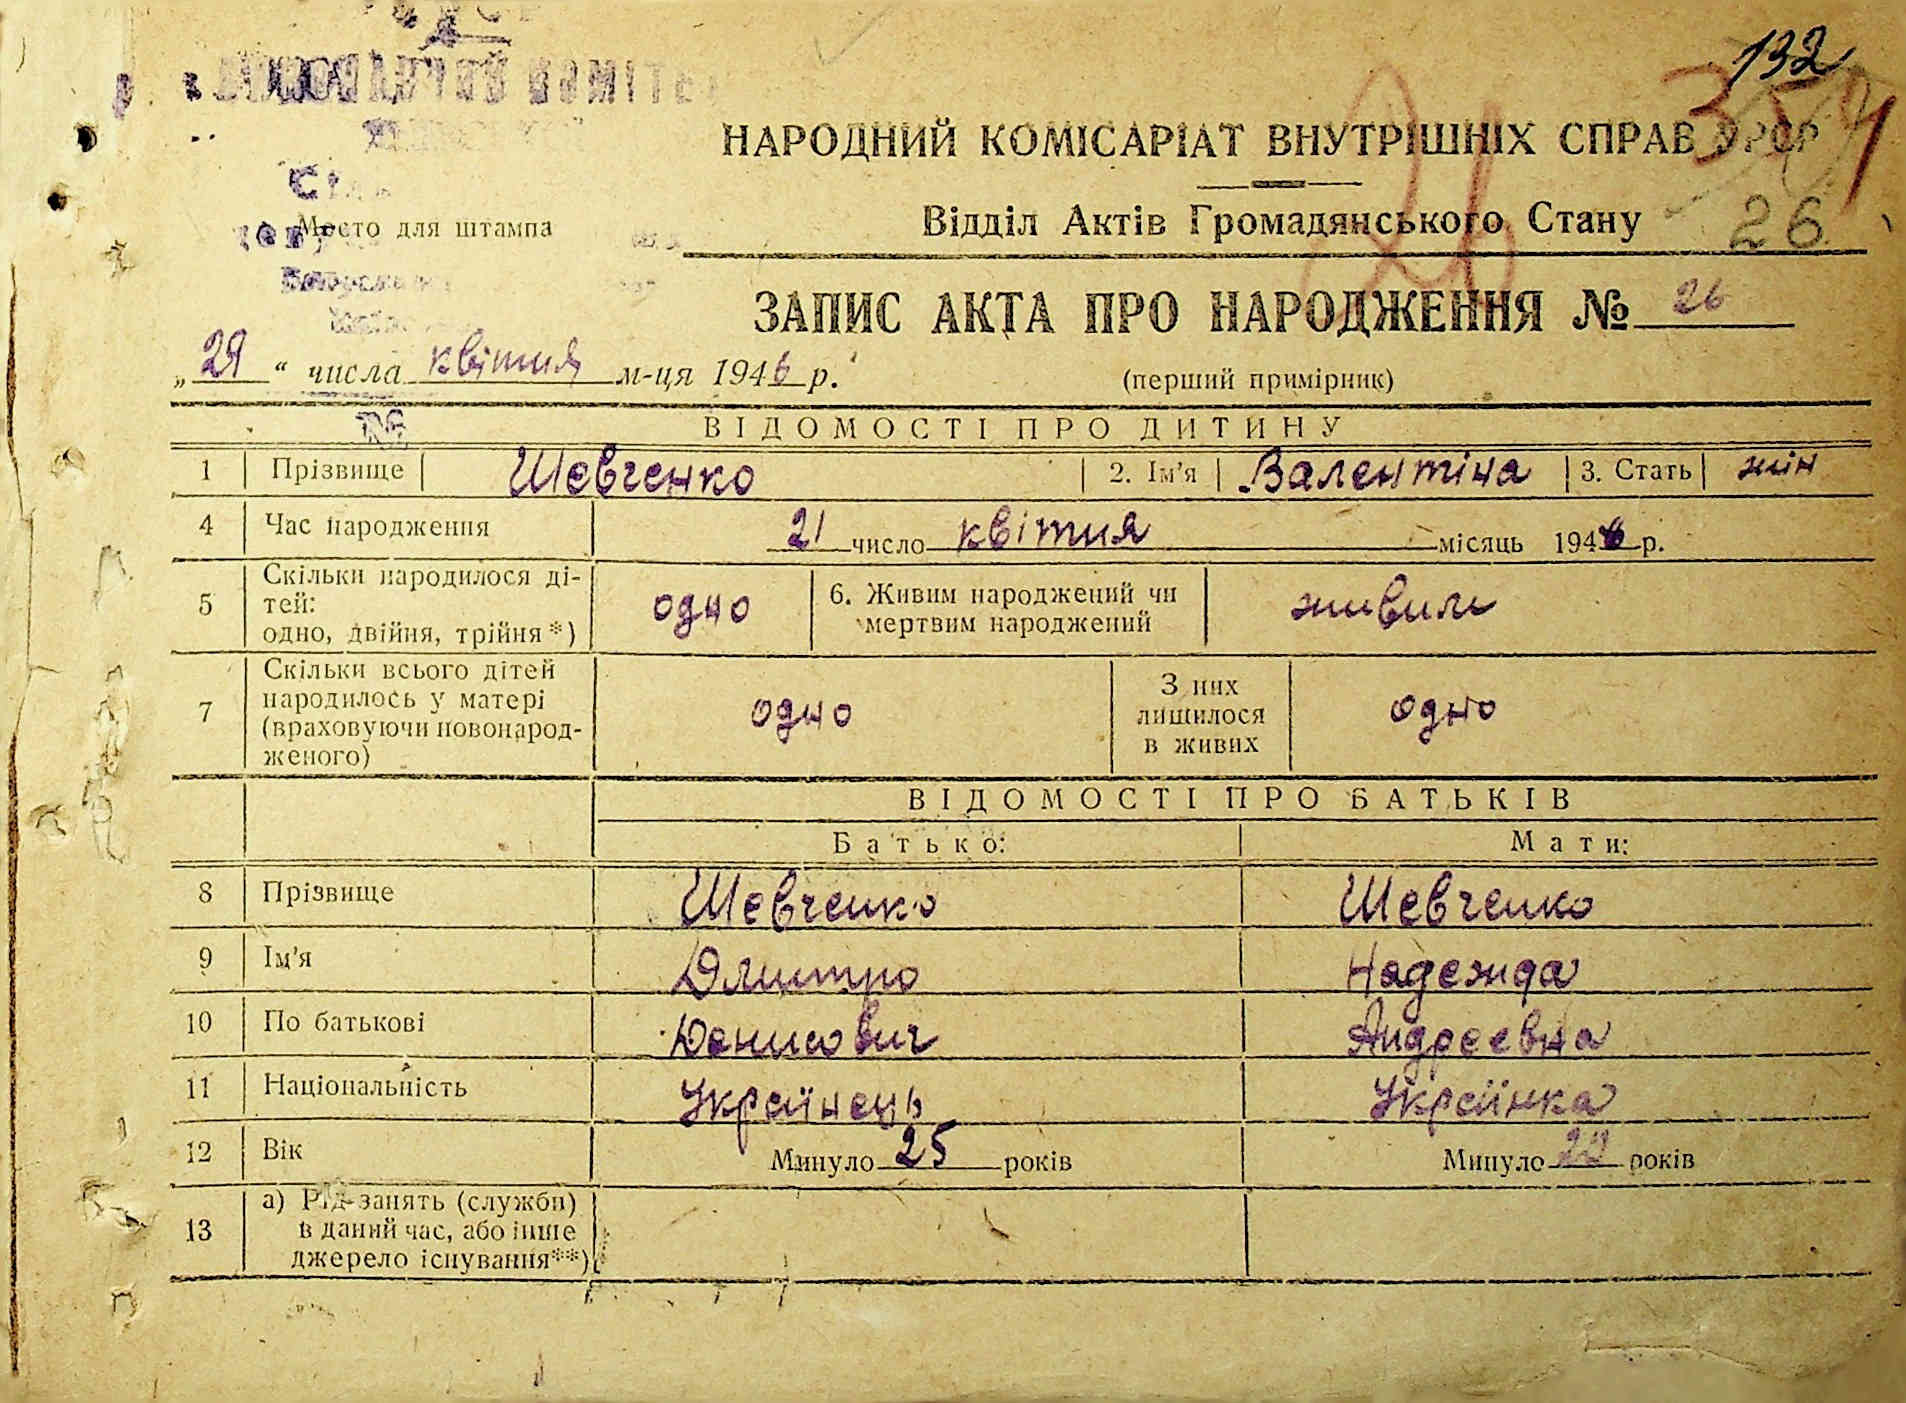 132
354
26
НАРОДНИЙ КОМІСАРІАТ ВНУТРІШНІХ СПРАВ УРСР
Место для штампа
Відділ Актів Громадянського Стану
26
ЗАПИС АКТА ПРО НАРОДЖЕННЯ № 26
„29“ числа квітня м-ця 1946 р.
(перший примірник)
ВІДОМОСТІ ПРО ДИТИНУ
1 Прізвище Шевченко 2. Ім'я Валентіна 3. Стать жін
4 Час народження 21 число квітня місяць 1946 р.
5 Скільки народилося ді-
тей:
одно, двійня, трійня*) одно 6. Живим народжений чи
мертвим народжений живим
7 Скільки всього дітей
народилось у матері
(враховуючи новонарод-
женого) одно З них
лишилося
в живих одно
ВІДОМОСТІ ПРО БАТЬКІВ
Батько: Мати:
8 Прізвище Шевченко Шевченко
9 Ім'я Дмитро Надежда
10 По батькові Денисович Андреевна
11 Національність Українець Українка
12 Вік Минуло 25 років Минуло років
13 а) Рід занять (служби)
в даний час, або інше
джерело існування**)